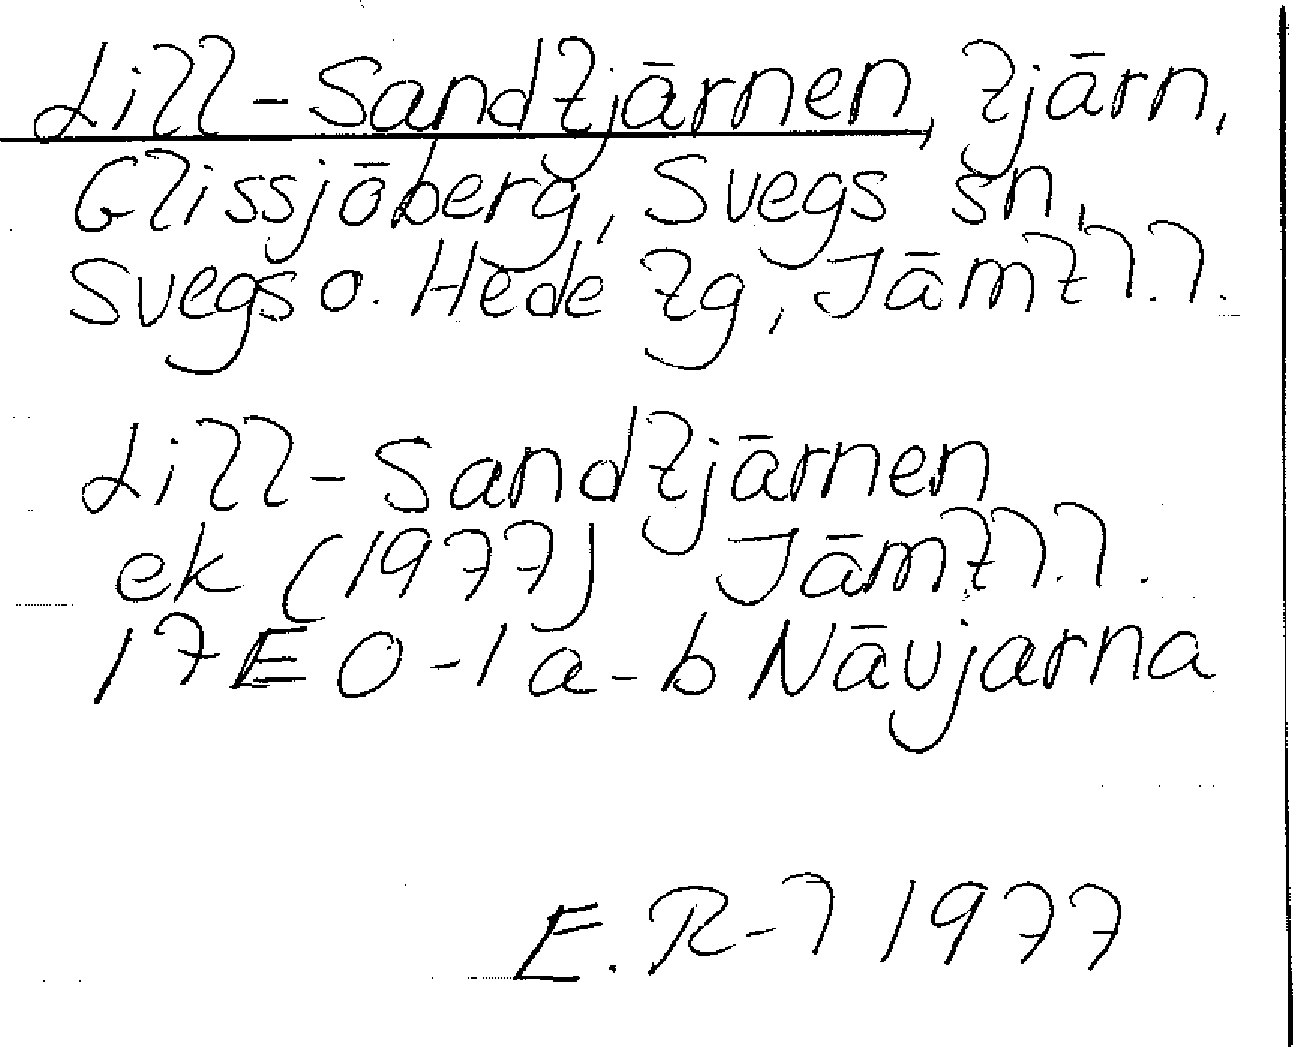 Lill-Sandtjärnen, tjärn,
Glissjöberg, Svegs sn,
Svegs o. Hede tg, Jämtl.l.
Lill-Sandtjärnen
ek (1977) Jämtl.l.
17E 0-1 a-b Nävjarna
E. R-l 1977